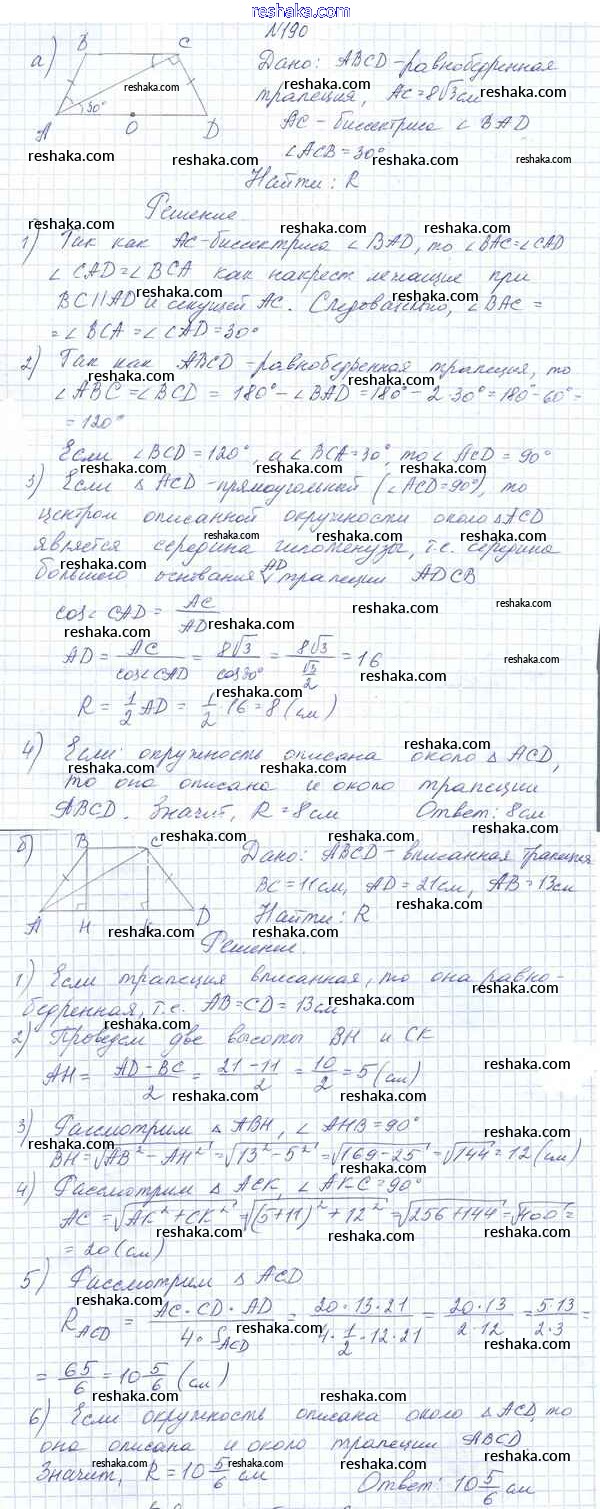 www.reshaka.com
№190
а) B C
30°
A O D
Дано: ABCD - равнобедренная
трапеция, AC = 8√3 см
AC - биссектриса ∠BAD
∠ACB = 30°
Найти: R
Решение
1) Так как AC-биссектриса ∠BAD, то ∠BAC=∠CAD
∠CAD=∠BCA как накрест лежащие при
BC||AD и секущей AC. Следовательно, ∠BAC =
= ∠BCA = ∠CAD = 30°
2) Так как ABCD - равнобедренная трапеция, то
∠ABC = ∠BCD = 180° - ∠BAD = 180° - 2·30° = 180° - 60° =
= 120°
Если ∠BCD = 120°, а ∠BCA = 30°, то ∠ACD = 90°
3) Если △ACD - прямоугольный (∠ACD = 90°), то
центром описанной окружности около △ACD
является середина гипотенузы, т.е. середина
большого основания AD трапеции ADCB
cos∠CAD = AC/AD
AD = AC/cos∠CAD = 8√3/cos30° = 8√3/(√3/2) = 16
R = 1/2 AD = 1/2 · 16 = 8 (см)
4) Если окружность описана около △ACD,
то она описана и около трапеции
ABCD. Значит, R = 8 см Ответ: 8 см
б) B C
A H K D
Дано: ABCD - вписанная трапеция
BC = 11 см, AD = 21 см, AB = 13 см
Найти: R
Решение.
1) Если трапеция вписанная, то она равно-
бедренная, т.е. AB = CD = 13 см
2) Проведем две высоты BH и CK
AH = (AD - BC)/2 = (21 - 11)/2 = 10/2 = 5 (см)
3) Рассмотрим △ABH, ∠AHB = 90°
BH = √(AB² - AH²) = √(13² - 5²) = √(169 - 25) = √144 = 12 (см)
4) Рассмотрим △ACK, ∠AKC = 90°
AC = √(AK² + CK²) = √((5+11)² + 12²) = √(256 + 144) = √400 =
= 20 (см)
5) Рассмотрим △ACD
R_ACD = (AC · CD · AD)/(4 · S_ACD) = (20 · 13 · 21)/(4 · 1/2 · 12 · 21) = (20 · 13)/(2 · 12) = (5 · 13)/(2 · 3) =
= 65/6 = 10 5/6 (см)
6) Если окружность описана около △ACD, то
она описана и около трапеции ABCD
Значит, R = 10 5/6 см Ответ: 10 5/6 см